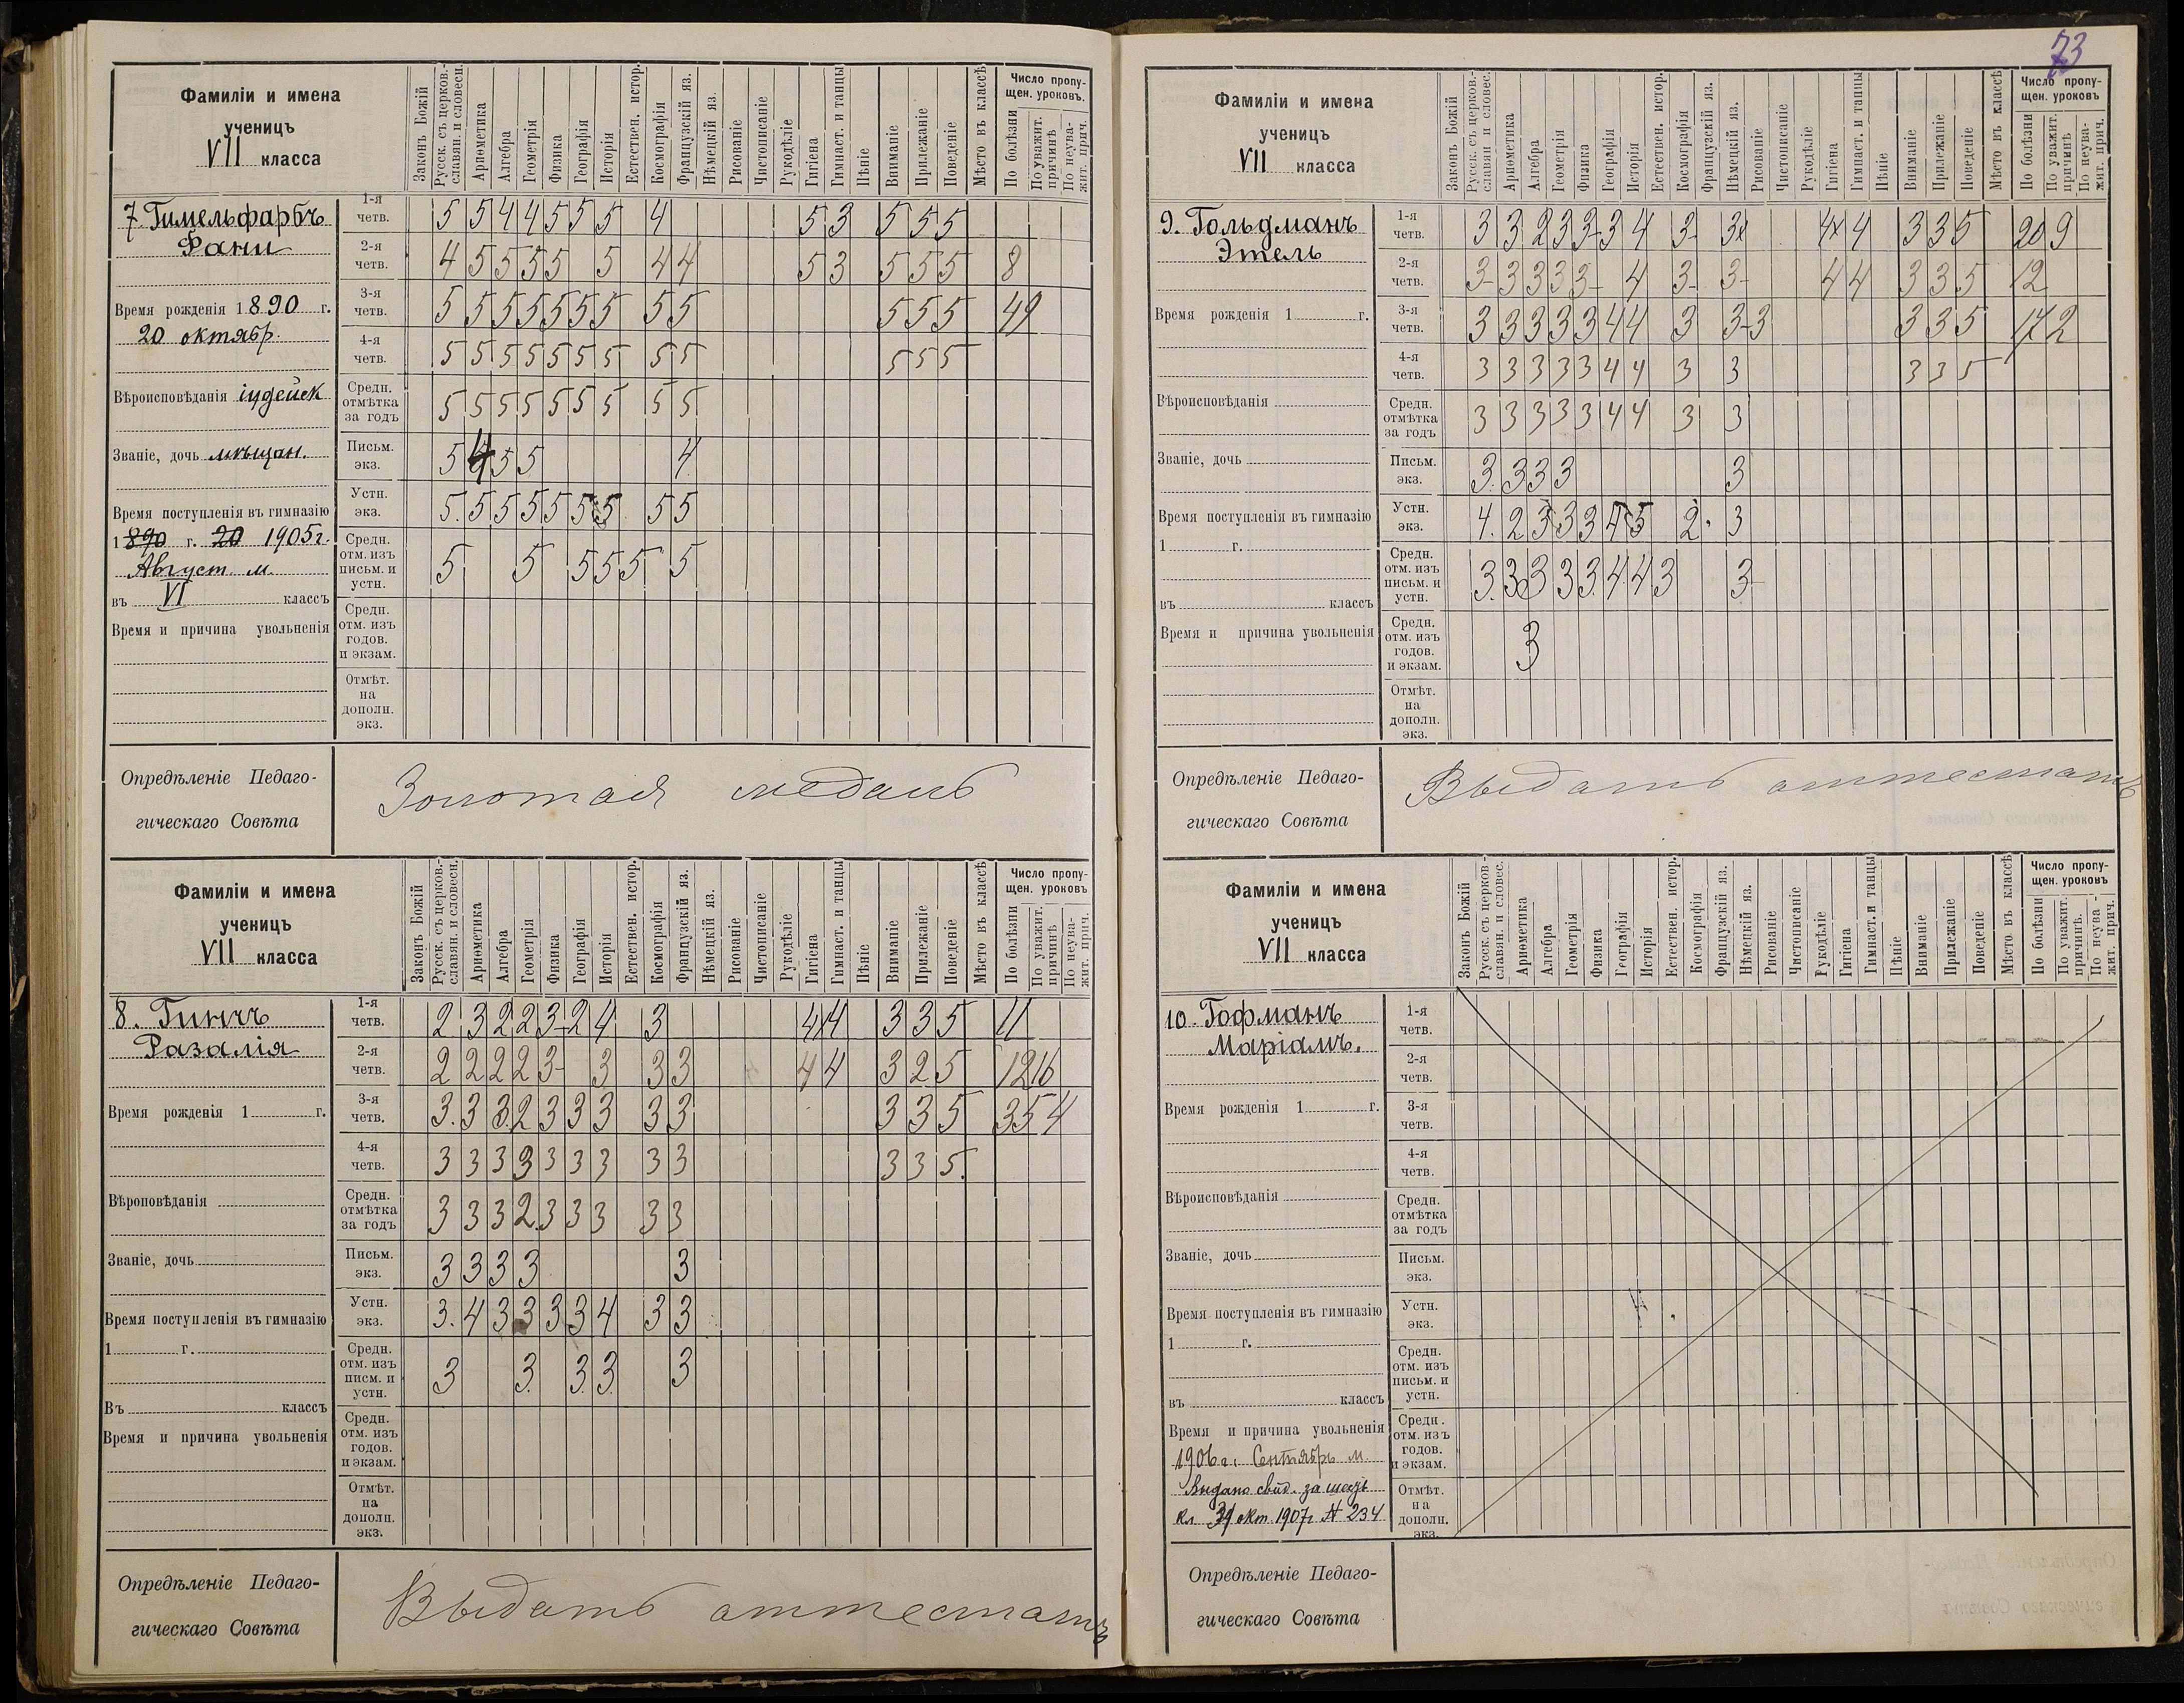 73
Фамиліи и имена
ученицъ
VII класса
Законъ Божій
Русск. съ церков.-
славян. и словесн.
Ариѳметика
Алгебра
Геометрія
Физика
Географія
Исторія
Естествен. истор.
Космографія
Французскій яз.
Нѣмецкій яз.
Рисованіе
Чистописаніе
Рукодѣліе
Гигіена
Гимнаст. и танцы
Пѣніе
Вниманіе
Прилежаніе
Поведеніе
Мѣсто въ классѣ
Число пропу-
щен. уроковъ.
По болѣзни
По уважит.
причинѣ
По неува-
жит. прич.
7. Гимельфарбъ
Фани
Время рожденія 1890 г.
20 октябр.
Вѣроисповѣданія іудейск
Званіе, дочь мѣщан.
Время поступленія въ гимназію
1890 г. 20 1905 г.
Август м.
въ VI классъ
Время и причина увольненія
1-я четв. 5 5 4 4 5 5 5 4 5 3 5 5 5
2-я четв. 4 5 5 5 5 5 4 4 5 3 5 5 5 8
3-я четв. 5 5 5 5 5 5 5 5 5 5 5 5 49
4-я четв. 5 5 5 5 5 5 5 5 5 5 5 5
Средн. отмѣтка за годъ 5 5 5 5 5 5 5 5 5
Письм. экз. 5 4 5 5 4
Устн. экз. 5. 5 5 5 5 5 5 5 5
Средн. отм. изъ письм. и устн. 5 5 5 5 5 5
Средн. отм. изъ годов. и экзам.
Отмѣт. на дополн. экз.
Опредѣленіе Педаго-
гическаго Совѣта
Золотая медаль
Фамиліи и имена
ученицъ
VII класса
Законъ Божій
Русск. съ церков.-
славян. и словесн.
Ариѳметика
Алгебра
Геометрія
Физика
Географія
Исторія
Естествен. истор.
Космографія
Французскій яз.
Нѣмецкій яз.
Рисованіе
Чистописаніе
Рукодѣліе
Гигіена
Гимнаст. и танцы
Пѣніе
Вниманіе
Прилежаніе
Поведеніе
Мѣсто въ классѣ
Число пропу-
щен. уроковъ
По болѣзни
По уважит.
причинѣ
По неува-
жит. прич.
8. Гинчъ
Разалія
Время рожденія 1 г.
Вѣроповѣданія
Званіе, дочь
Время поступленія въ гимназію
1 г.
Въ классъ
Время и причина увольненія
1-я четв. 2 3 2 2 3- 2 4 3 4 4 3 3 5 11
2-я четв. 2 2 2 2 3- 3 3 3 4 4 3 2 5 12 16
3-я четв. 3. 3 3. 2 3 3 3 3 3 3 3 5 35 4
4-я четв. 3 3 3 3 3 3 3 3 3 3 3 5.
Средн. отмѣтка за годъ 3 3 3 2. 3 3 3 3 3
Письм. экз. 3 3 3 3 3
Устн. экз. 3. 4 3 3 3 3 4 3 3
Средн. отм. изъ писм. и устн. 3 3. 3. 3. 3
Средн. отм. изъ годов. и экзам.
Отмѣт. на дополн. экз.
Опредѣленіе Педаго-
гическаго Совѣта
Выдать аттестатъ
Фамиліи и имена
ученицъ
VII класса
Законъ Божій
Русск. съ церков.-
славян и словес.
Ариѳметика
Алгебра
Геометрія
Физика
Географія
Исторія
Естествен. истор.
Космографія
Французскій яз.
Нѣмецкій яз.
Рисованіе
Чистописаніе
Рукодѣліе
Гигіена
Гимнаст. и танцы
Пѣніе
Вниманіе
Прилежаніе
Поведеніе
Мѣсто въ классѣ
Число пропу-
щен. уроковъ
По болѣзни
По уважит.
причинѣ
По неува-
жит. прич.
9. Гольдманъ
Этель
Время рожденія 1 г.
Вѣроисповѣданія
Званіе, дочь
Время поступленія въ гимназію
1 г.
въ классъ
Время и причина увольненія
1-я четв. 3 3 2 3 3- 3 4 3- 3 4 4 3 3 5 20 9
2-я четв. 3- 3 3 3 3- 4 3- 3- 4 4 3 3 5 12
3-я четв. 3 3 3 3 3 4 4 3 3-3 3 3 5 17 2
4-я четв. 3 3 3 3 3 4 4 3 3 3 3 5
Средн. отмѣтка за годъ 3 3 3 3 3 4 4 3 3
Письм. экз. 3. 3 3 3 3
Устн. экз. 4. 2 3 3 3 4 5 2. 3
Средн. отм. изъ письм. и устн. 3. 3 3 3 3. 4. 4 3 3
Средн. отм. изъ годов. и экзам. 3
Отмѣт. на дополн. экз.
Опредѣленіе Педаго-
гическаго Совѣта
Выдать аттестатъ
Фамиліи и имена
ученицъ
VII класса
Законъ Божій
Русск. съ церков-
славян. и словес.
Ариѳметика
Алгебра
Геометрія
Физика
Географія
Исторія
Естествен. истор.
Космографія
Французскій яз.
Нѣмецкій яз.
Рисованіе
Чистописаніе
Рукодѣліе
Гигіена
Гимнаст. и танцы
Пѣніе
Вниманіе
Прилежаніе
Поведеніе
Мѣсто въ классѣ
Число пропу-
щен. уроковъ
По болѣзни
По уважит.
причинѣ.
По неува-
жит. прич.
10. Гофманъ
Маріамъ.
Время рожденія 1 г.
Вѣроисповѣданія
Званіе, дочь
Время поступленія въ гимназію
1 г.
въ классъ
Время и причина увольненія
1906 г. Сентябрь м.
Выдано свид. за шесть
кл 31 окт. 1907 г № 234
1-я четв.
2-я четв.
3-я четв.
4-я четв.
Средн. отмѣтка за годъ
Письм. экз.
Устн. экз.
Средн. отм. изъ письм. и устн.
Средн. отм. изъ годов. и экзам.
Отмѣт. на дополн. экз.
Опредѣленіе Педаго-
гическаго Совѣта